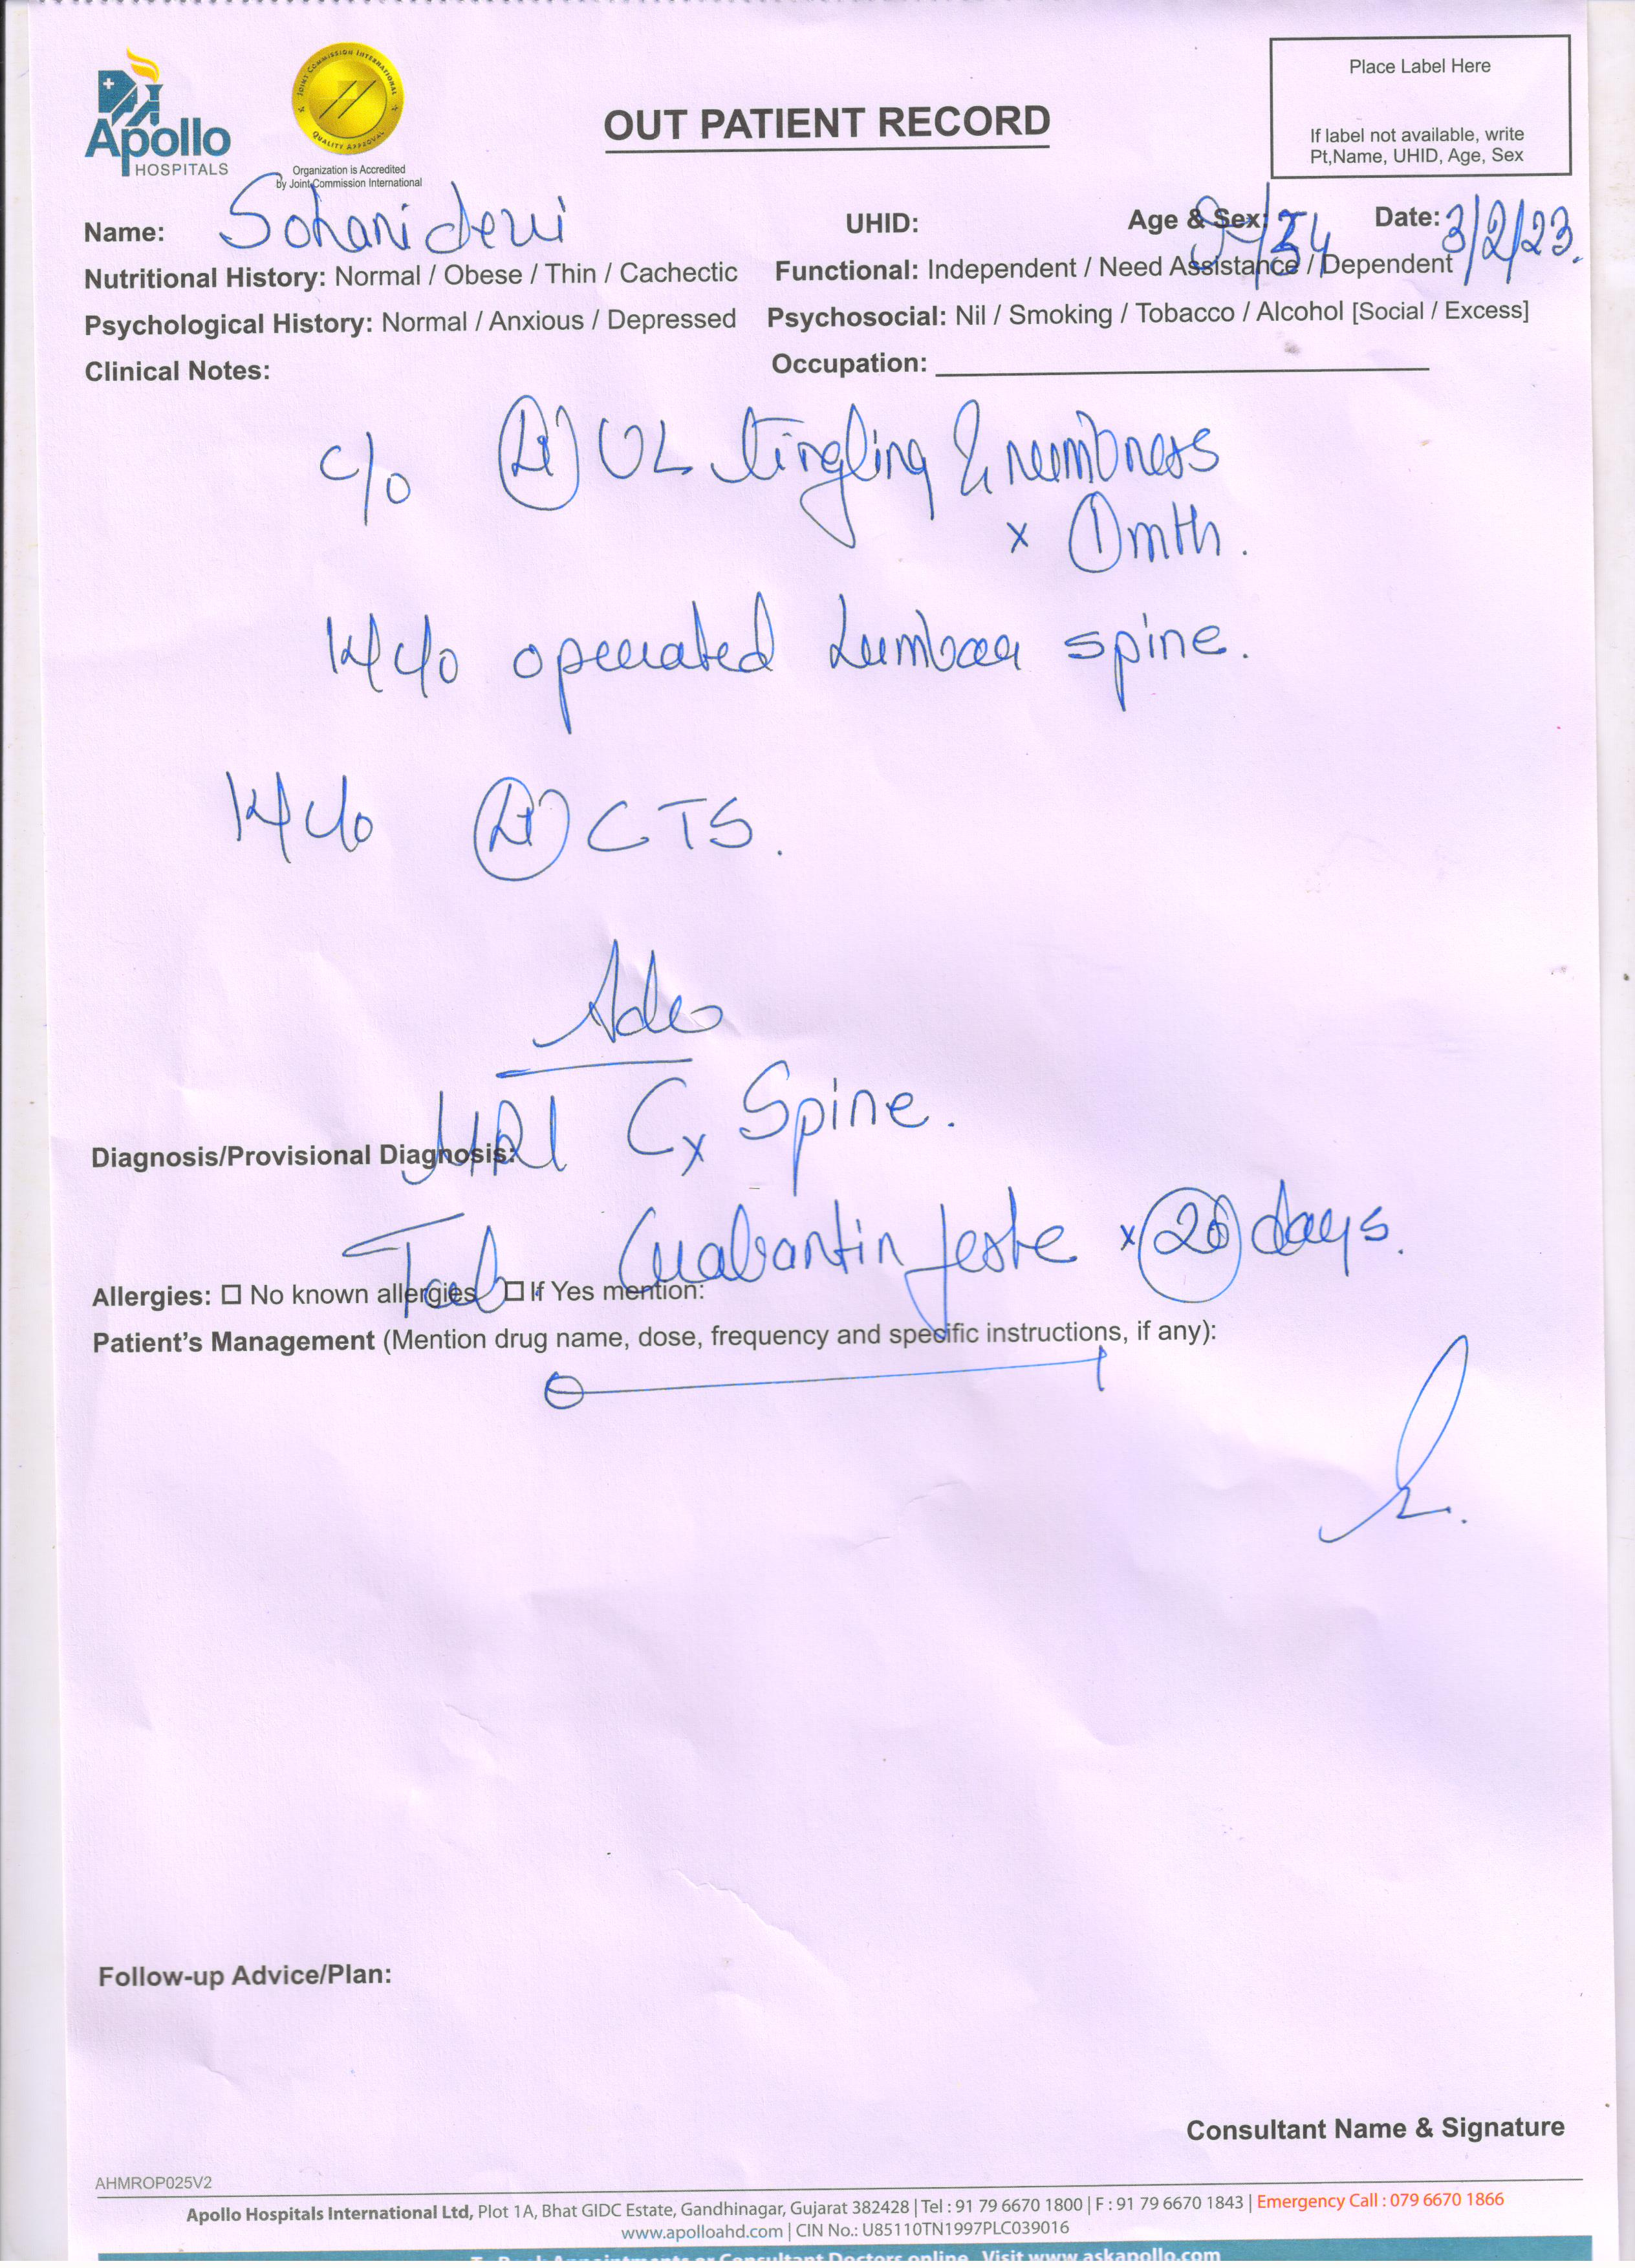 Apollo
HOSPITALS
JOINT COMMISSION INTERNATIONAL
QUALITY APPROVAL
Organization is Accredited
by Joint Commission International
OUT PATIENT RECORD
Place Label Here
If label not available, write
Pt,Name, UHID, Age, Sex
Name: Sohanidevi UHID: Age & Sex: Date: 3/2/23.
Nutritional History: Normal / Obese / Thin / Cachectic Functional: Independent / Need Assistance / Dependent
Psychological History: Normal / Anxious / Depressed Psychosocial: Nil / Smoking / Tobacco / Alcohol [Social / Excess]
Clinical Notes: Occupation:
c/o (Lt) UL tingling & numbness
x 1 mth.
K/c/o operated Lumbar spine.
K/c/o (Lt) CTS.
Adv
MRI Cx Spine.
Diagnosis/Provisional Diagnosis:
Tab forte x 20 days.
Allergies: ☐ No known allergies ☐ If Yes mention:
Patient's Management (Mention drug name, dose, frequency and specific instructions, if any):
Follow-up Advice/Plan:
Consultant Name & Signature
AHMROP025V2
Apollo Hospitals International Ltd, Plot 1A, Bhat GIDC Estate, Gandhinagar, Gujarat 382428 | Tel : 91 79 6670 1800 | F : 91 79 6670 1843 | Emergency Call : 079 6670 1866
www.apolloahd.com | CIN No.: U85110TN1997PLC039016
To Book Appointments or Consultant Doctors online, Visit www.askapollo.com